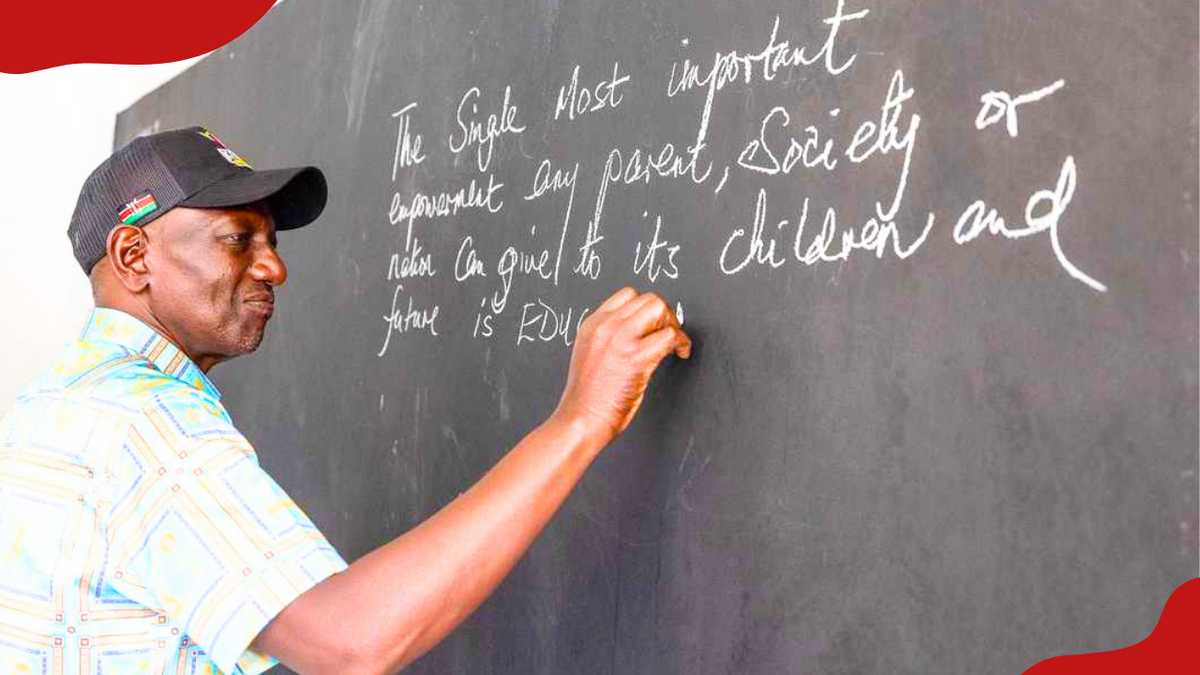 The Single Most important
empowerment any parent, Society or
nation Can give to its children and
future is EDUC